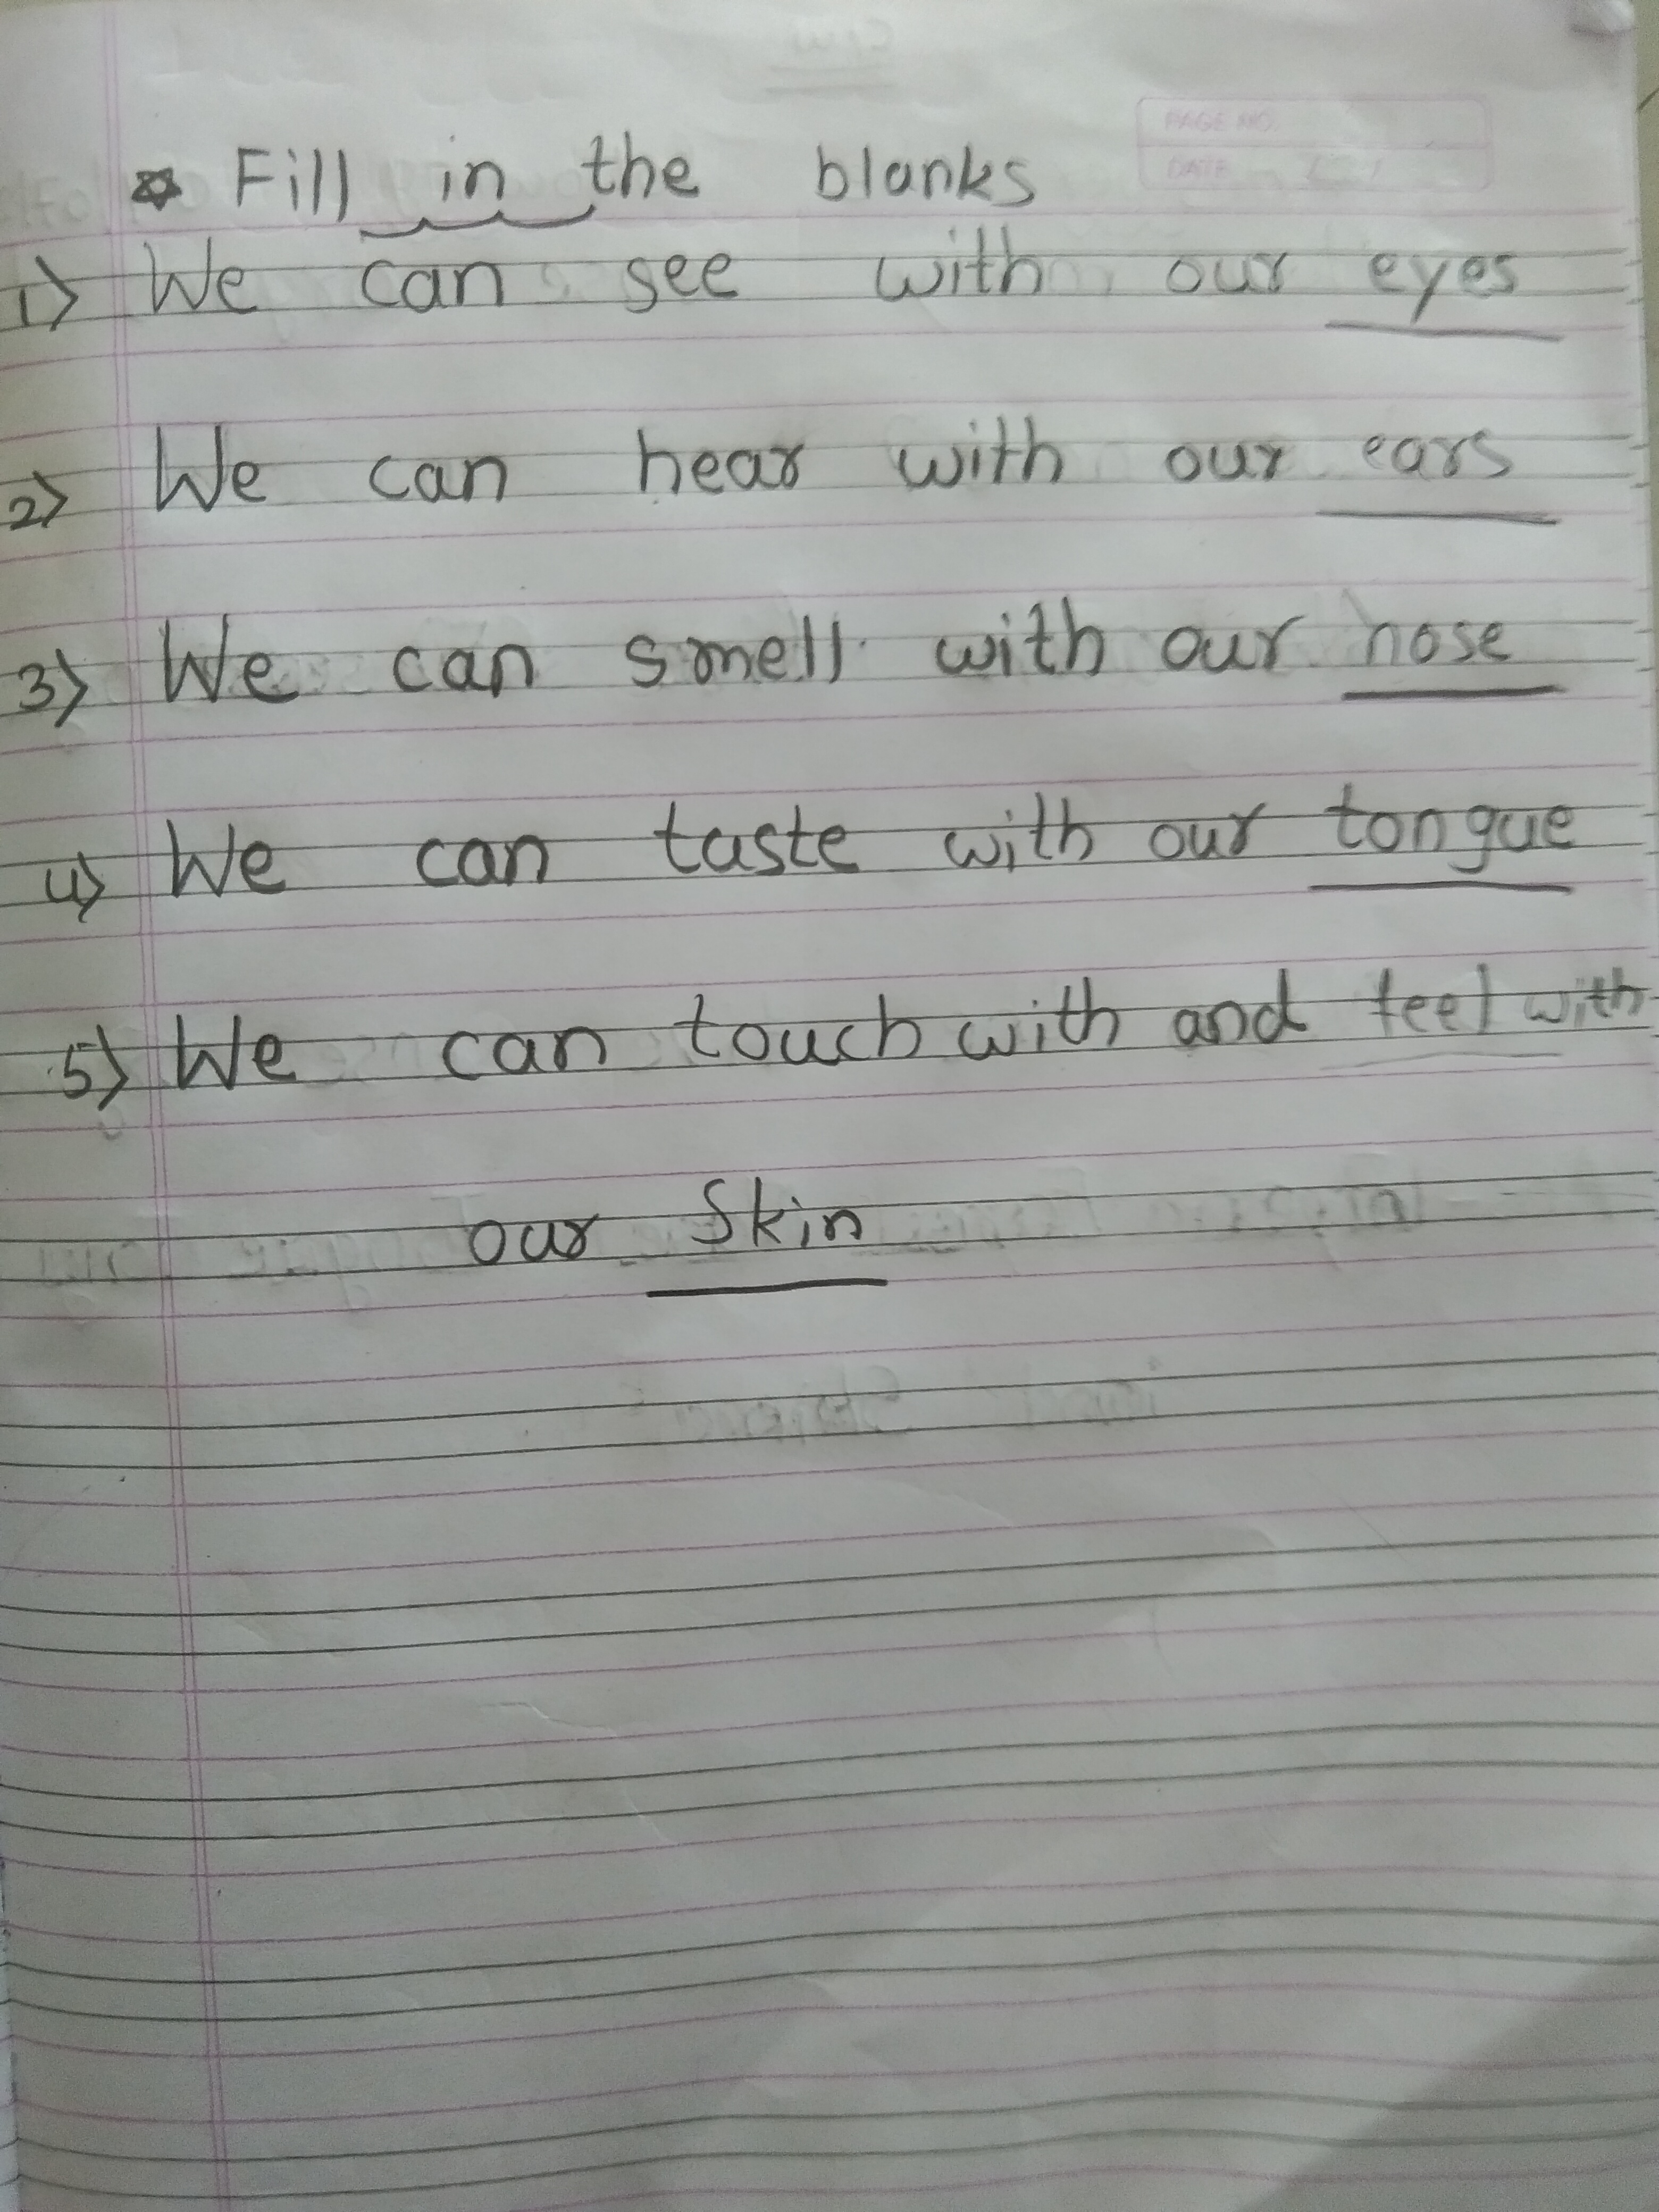 ☆ Fill in the blanks
PAGE NO.
DATE
1) We can see with our eyes
2) We can hear with our ears
3) We can smell with our nose
4) We can taste with our tongue
5) We can touch with and feel with
our Skin